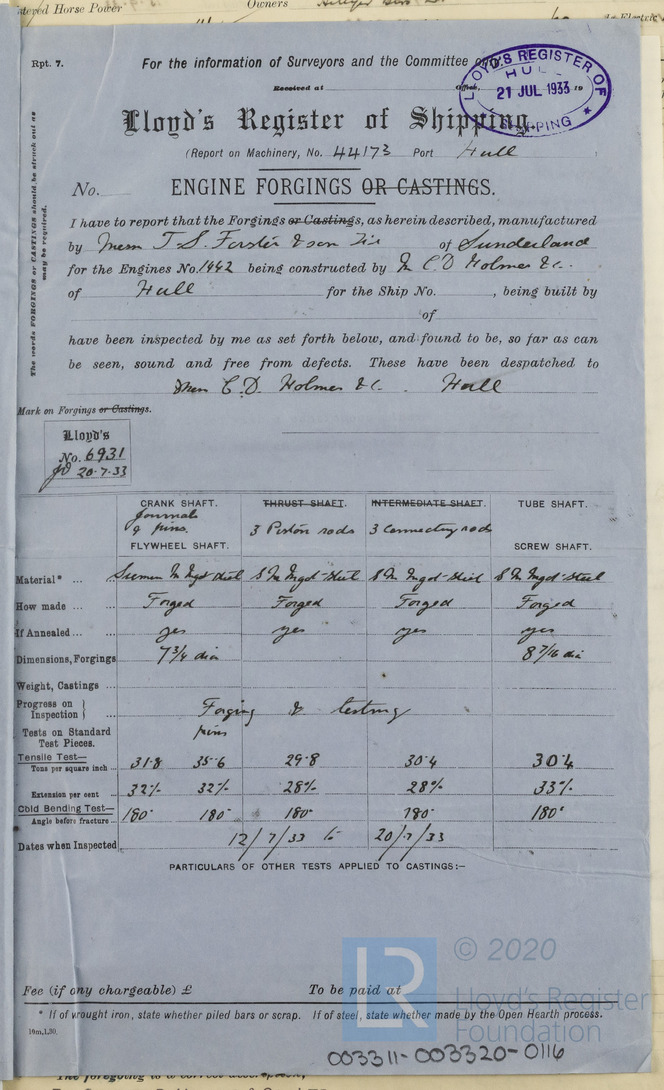 tered Horse Power Owners
Rpt. 7.
For the information of Surveyors and the Committee only.
Received at Office, 19
LLOYD'S REGISTER OF
HULL
21 JUL 1933
SHIPPING
Lloyd's Register of Shipping.
(Report on Machinery, No. 44173 Port Hull
No. ENGINE FORGINGS OR CASTINGS.
The words FORGINGS or CASTINGS should be struck out as
may be required.
I have to report that the Forgings or Castings, as herein described, manufactured
by Messrs T. S. Forster & Son of Sunderland
for the Engines No. 1442 being constructed by C D Holmes & Co.
of Hull for the Ship No. , being built by
of
have been inspected by me as set forth below, and found to be, so far as can
be seen, sound and free from defects. These have been despatched to
Messrs C. D. Holmes & Co. Hull
Mark on Forgings or Castings.
Lloyd's
No. 6931
20.7.33
CRANK SHAFT. THRUST SHAFT. INTERMEDIATE SHAFT. TUBE SHAFT.
Journals
& pins. 3 Piston rods 3 Connecting rods
FLYWHEEL SHAFT. SCREW SHAFT.
Material* ... Siemen M Ingot Steel S M Ingot-Steel S M Ingot-Steel S M Ingot-Steel
How made ... Forged Forged Forged Forged
If Annealed ... yes yes yes yes
Dimensions, Forgings 7¾ dia 8 7/16 dia
Weight, Castings ...
Progress on
Inspection } ... Forging & testing
Tests on Standard
Test Pieces. pins
Tensile Test—
Tons per square inch ... 31.8 35.6 29.8 30.4 30.4
Extension per cent ... 32% 32% 28% 28% 33%
Cold Bending Test—
Angle before fracture .. 180° 180° 180° 180° 180°
Dates when Inspected 12/7/33 to 20/7/33
PARTICULARS OF OTHER TESTS APPLIED TO CASTINGS:—
© 2020
LR
Lloyd's Register
Foundation
Fee (if any chargeable) £ To be paid at
* If of wrought iron, state whether piled bars or scrap. If of steel, state whether made by the Open Hearth process.
10m,1,30.
003311-003320-0116
The foregoing is a correct description,